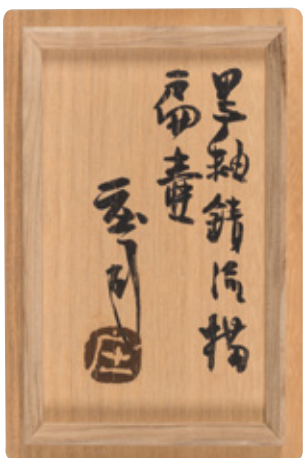 黒釉錆流描
扁壷
庄司
庄